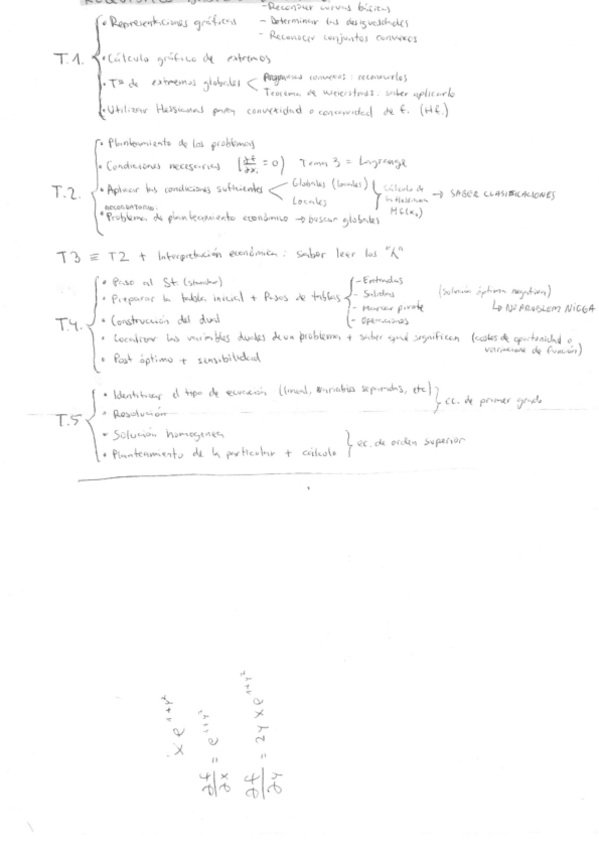 REQUISITOS
- Reconocer curvas básicas
• Representaciones gráficas - Determinar las desigualdades
- Reconocer conjuntos convexos
T.1. • Cálculo gráfico de extremos
• Tª de extremos globales < Programas convexos: reconocerlos
Teorema de Weierstrass: saber aplicarlo
• Utilizar Hessianas para convexidad o concavidad de f. (Hf.)
• Planteamiento de los problemas
• Condiciones necesarias (∂f/∂xi = 0) Tema 3 = Lagrange
T.2. • Aplicar las condiciones suficientes < Globales (locales) Cálculo de la Hessiana Hf(x₀) → SABER CLASIFICACIONES
Locales
RECORDATORIO:
• Problema de planteamiento económico → buscar globales
T3 ≡ T2 + Interpretación económica: saber leer los "λ"
• Paso al St. (standar)
• Preparar la tabla inicial + Pasos de tablas - Entradas
- Salidas (solución óptima negativa)
- Marcar pivote ↳ NO PROBLEM NIGGA
- Operaciones
T.4. • Construcción del dual
• Localizar las variables duales de un problema + saber qué significan (costes de oportunidad o variaciones de función)
• Post óptimo + sensibilidad
• Identificar el tipo de ecuación (lineal, variables separadas, etc) } ec. de primer grado
T.5 • Resolución
• Solución homogenea
• Planteamiento de la particular + cálculo } ec. de orden superior
x e^(1+y²)
∂f/∂x = e^(1+y²)
∂f/∂y = 2y x e^(1+y²)